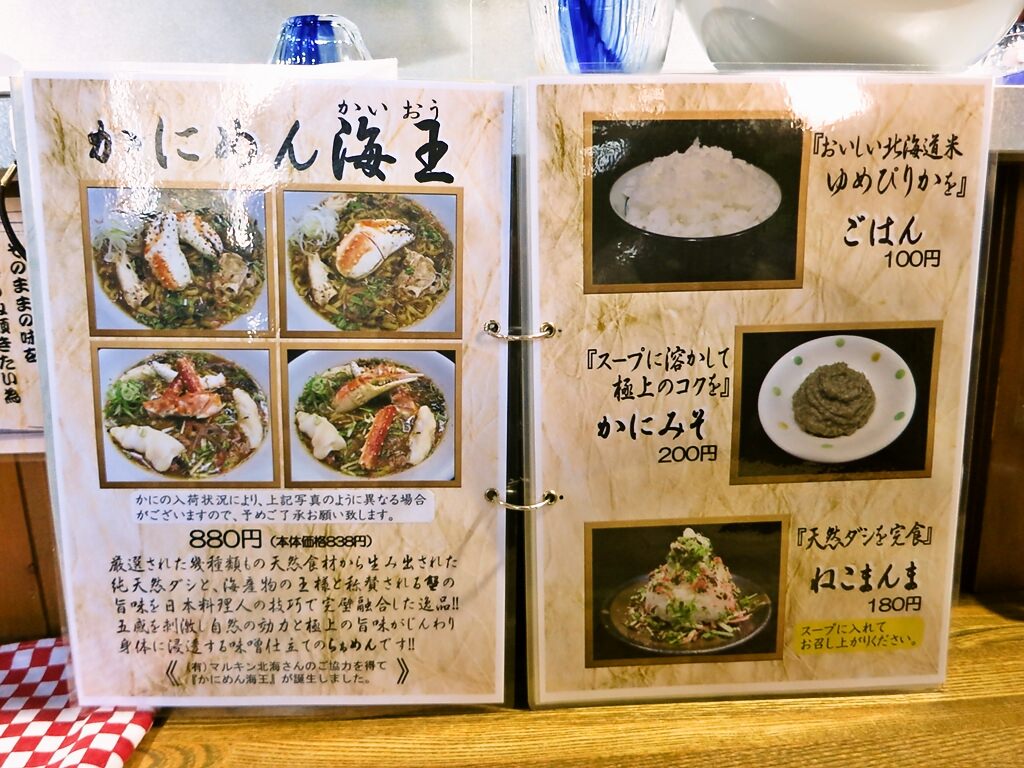 かい おう
かにめん海王
かにの入荷状況により、上記写真のように異なる場合
がございますので、予めご了承お願い致します。
880円(本体価格838円)
厳選された幾種類もの天然食材から生み出された
純天然ダシと、海産物の王様と称賛される蟹の
旨味を日本料理人の技巧で完璧融合した逸品!!
五感を刺激し自然の動力と極上の旨味がじんわり
身体に浸透する味噌仕立てのらぁめんです!!
《(有)マルキン北海さんのご協力を得て
『かにめん海王』が誕生しました。》
『おいしい北海道米
ゆめぴりかを』
ごはん
100円
『スープに溶かして
極上のコクを』
かにみそ
200円
『天然ダシを完食』
ねこまんま
180円
スープに入れて
お召し上がりください。
そのままの味を